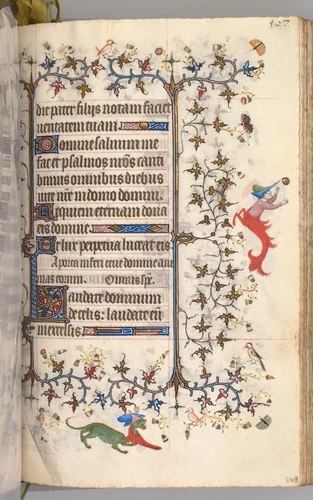 427
die pater filijs notam faciet
ueritatem tuam
Domine saluum me
fac et psalmos nr̄os canti
bimus omnibus diebus
uite nr̄e in domo domini.
Requiem eternam dona
eis domine.
Et lux perpetua luceat eis
A porta inferi erue domine ani
mas eorum. Omnis sp̄s.
Laudate dominum
de celis: laudate eū
in excelsis
218